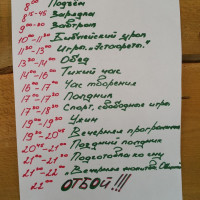 8⁰⁰ Подъём
8¹⁵-45 Зарядка
9⁰⁰-30 Завтрак
10⁰⁰-11³⁰ Библейский урок
11³⁰-13⁰⁰ Игра. „Эстафета."
13⁰⁰-14⁰⁰ Обед
14⁰⁰-16⁰⁰ Тихий час
16⁰⁰-17⁰⁰ Час творения
17⁰⁰ Полдник
17³⁰-18⁰⁰ Спорт, свободная игра
19⁰⁰-19³⁰ Ужин
19³⁰-20⁴⁵ Вечерняя программа
20⁴⁵-21⁰⁰ Поздний полдник
21⁰⁰-21²⁰ Подготовка ко сну
21²⁰-22⁰⁰ „Вечерняя
22⁰⁰ ОТБОЙ!!!